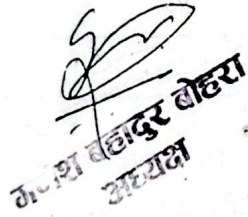 गणेश बहादुर बोहरा
अध्यक्ष